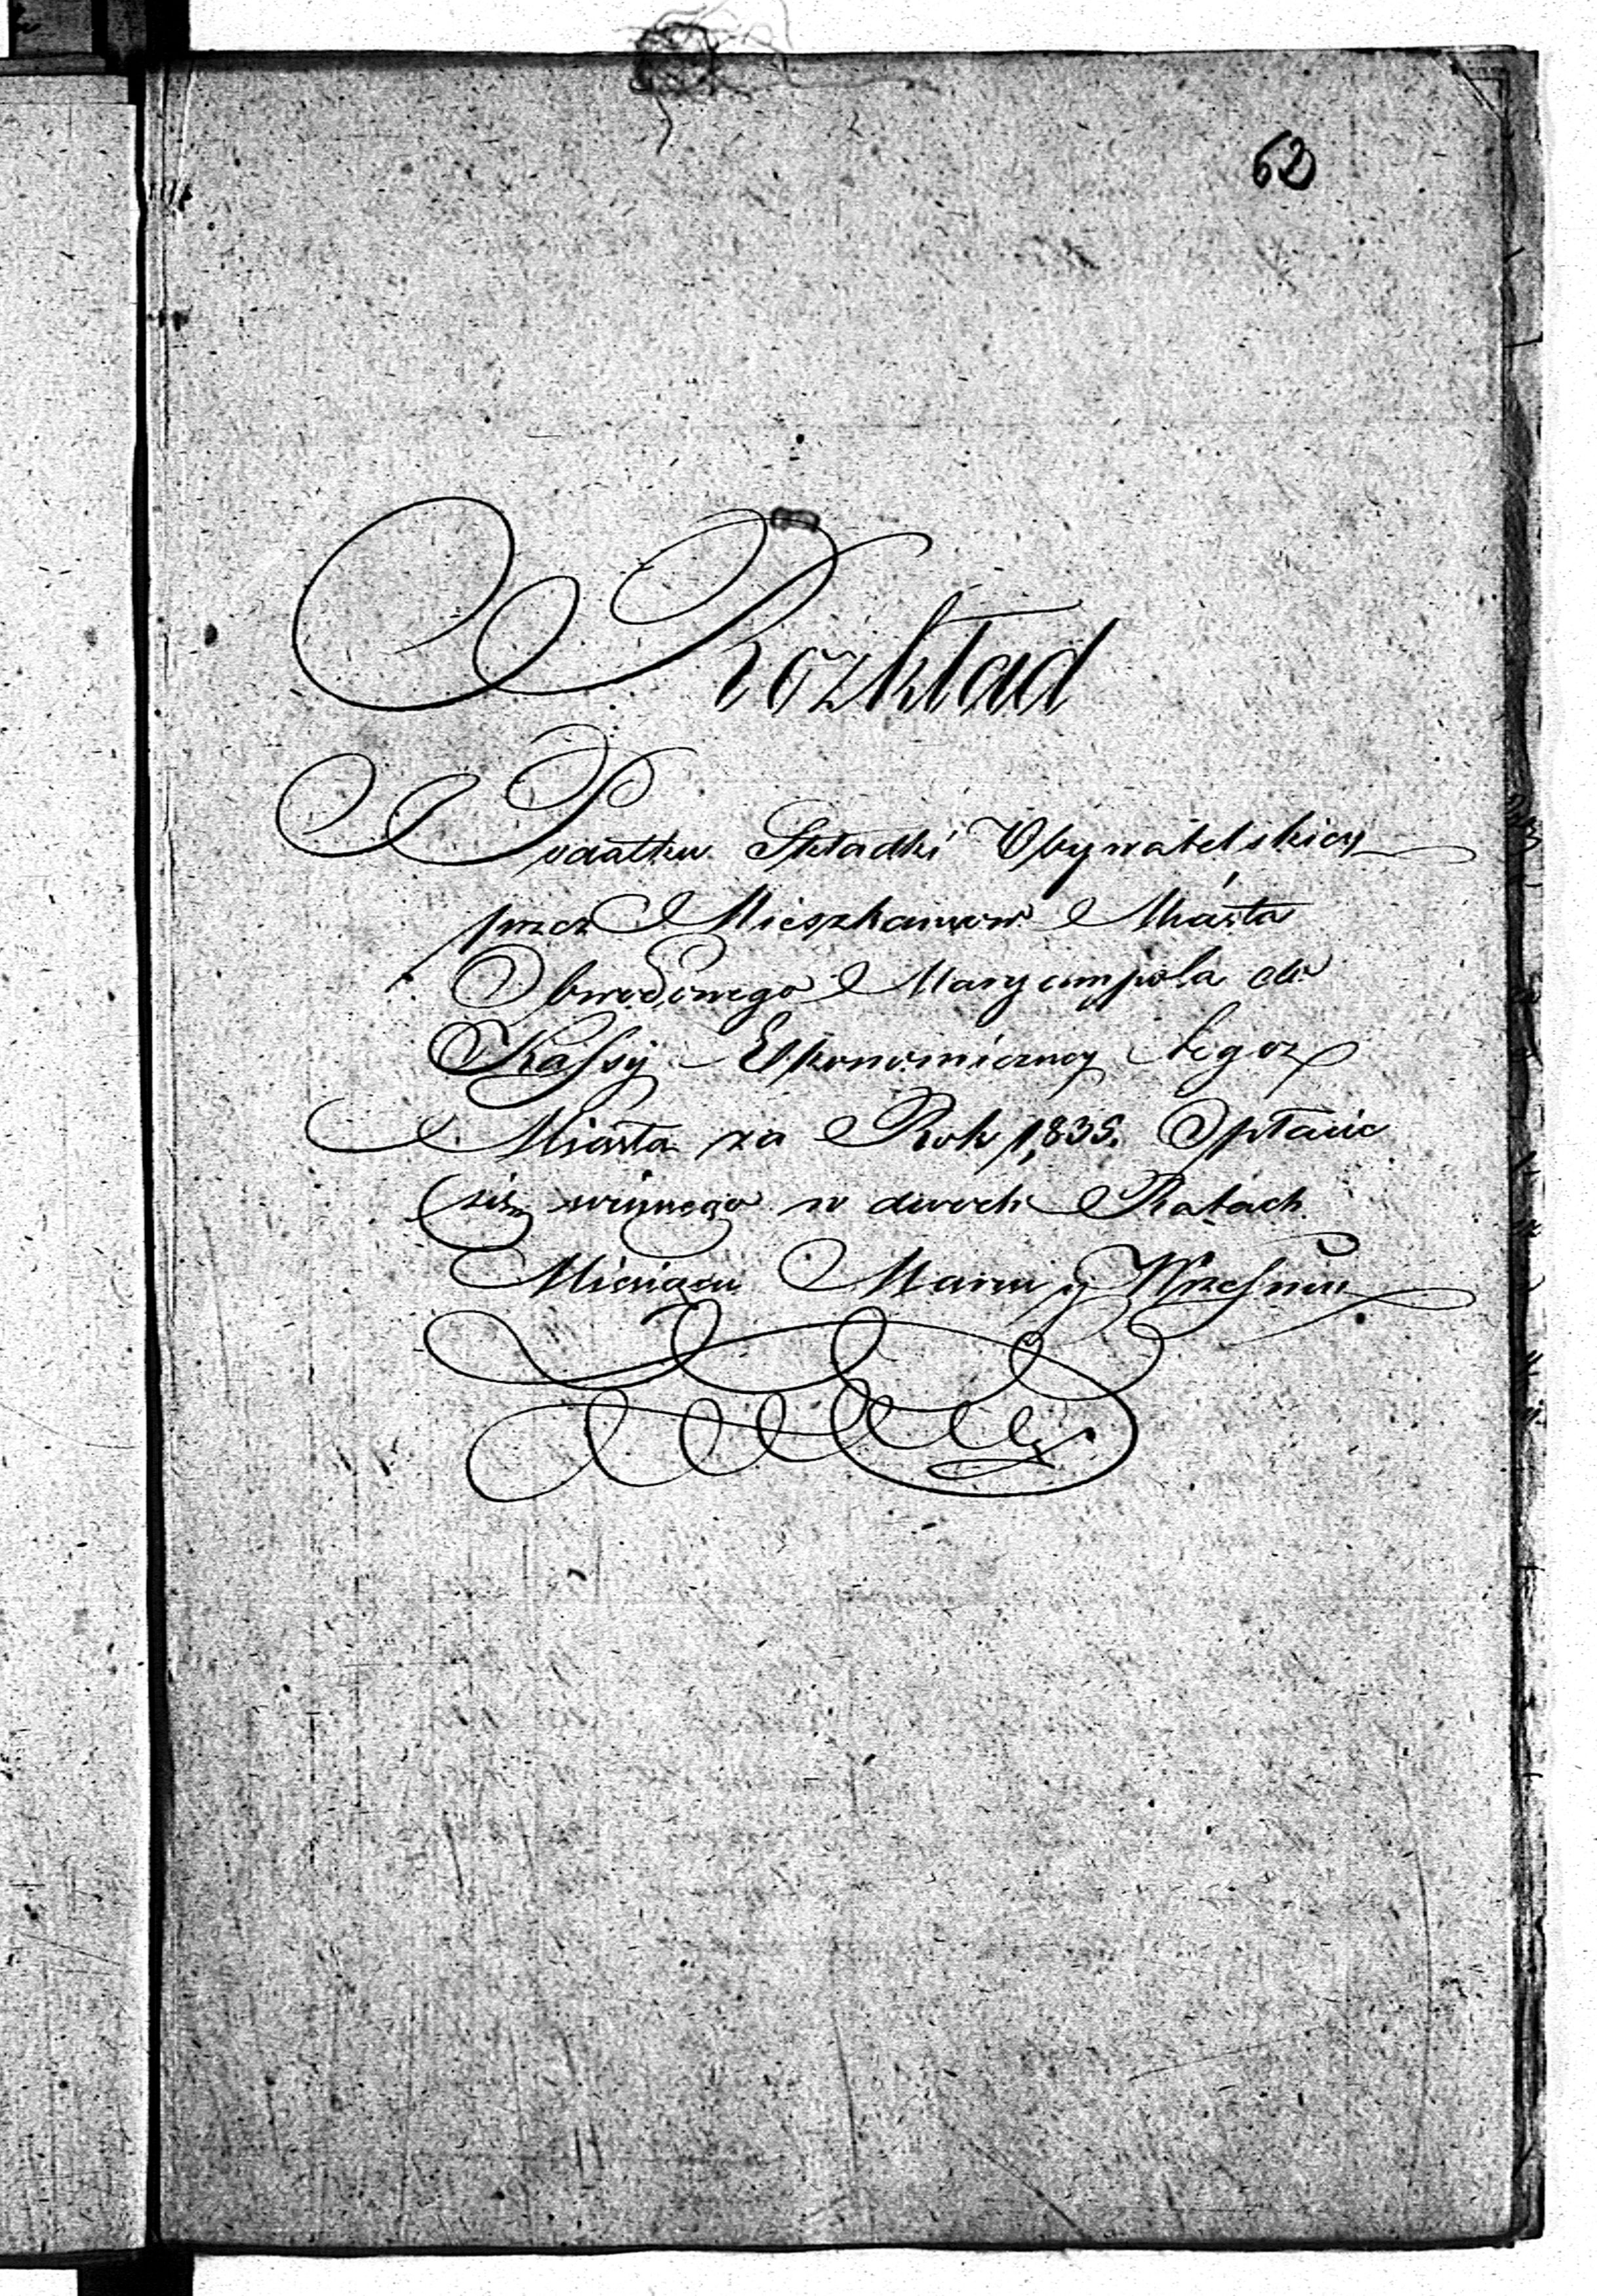 62
Rozkład
Podatku Składki Obywatelskiey
przez Mieszkancow Miasta
Obwodowego Maryampola do
Kassÿ Ekonomiczney tegoz
Miasta za Rok 1,835. Opłacic
się winnego w dwoch Ratach
Miesiącu Marcu y Wrzesniu